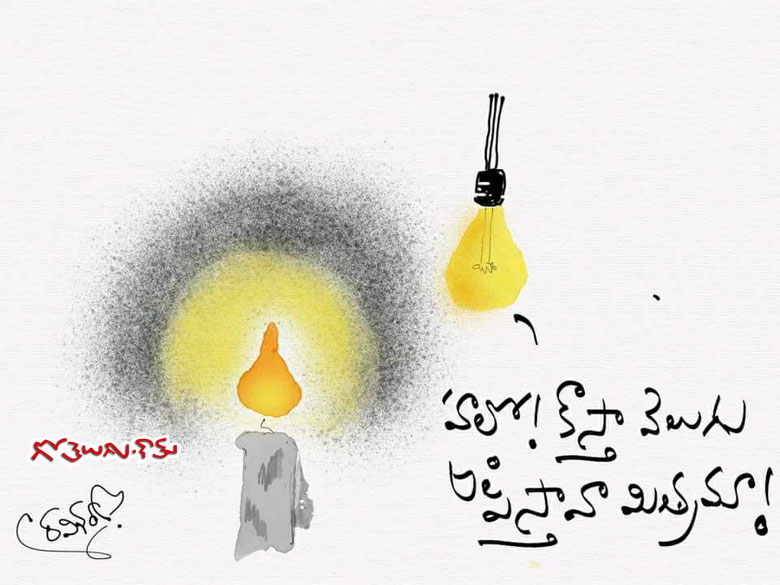 హలో! కాస్తా వెలుగు
అప్పిస్తావా మిత్రమా!
గోతెలుగు.కామ్